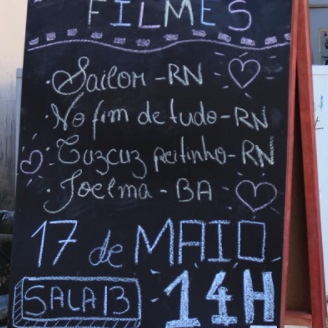 FILMES
· Sailor - RN
· No fim de tudo - RN
· Cuzcuz peitinho - RN
· Joelma - BA
17 de MAIO
SALA 13
14H